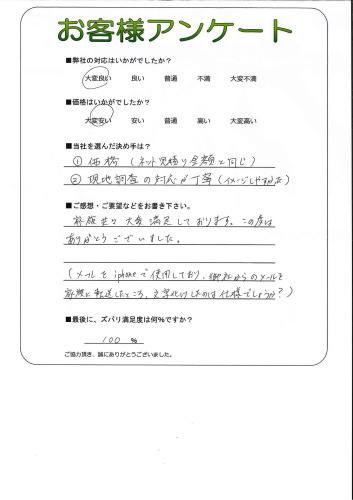 お客様アンケート
■弊社の対応はいかがでしたか?
大変良い 良い 普通 不満 大変不満
■価格はいかがでしたか?
大変安い 安い 普通 高い 大変高い
■当社を選んだ決め手は?
① 価格 (ネット見積り金額と同じ)
② 現地調査の対応が丁寧 (イメージしやすかった)
■ご感想・ご要望などをお書き下さい。
家族共々大変満足しております。この度は
ありがとうございました。
(メールをiphoneで使用しており、御社からのメールを
家族に転送したところ、文字化けしたのは仕様でしょうか?)
■最後に、ズバリ満足度は何%ですか?
100 %
ご協力頂き、誠にありがとうございました。